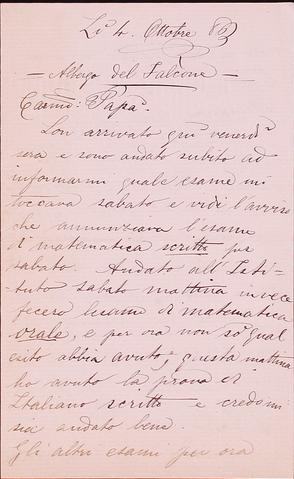 Lì 4. Ottobre 86
— Albergo del Falcone —
Carmo: Papà.
Son arrivato qui venerdì
sera e sono andato subito ad
informarmi quale esame mi
toccava sabato e vidi l'avviso
che annunziava l'esame
di matematica scritto per
sabato. Andato all'Isti-
tuto sabato mattina invece
fecero l'esame di matematica
orale, e per ora non so qual
esito abbia avuto; questa mattina
ho avuto la prova di
Italiano scritto e credomi
sia andato bene.
Gli altri esami per ora